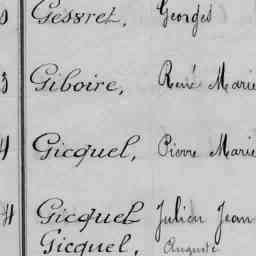 Gesvret, Georges
3 Giboire, René Marie
4 Gicquel, Pierre Marie
4 Gicquel Julien Jean
Gicquel, Auguste